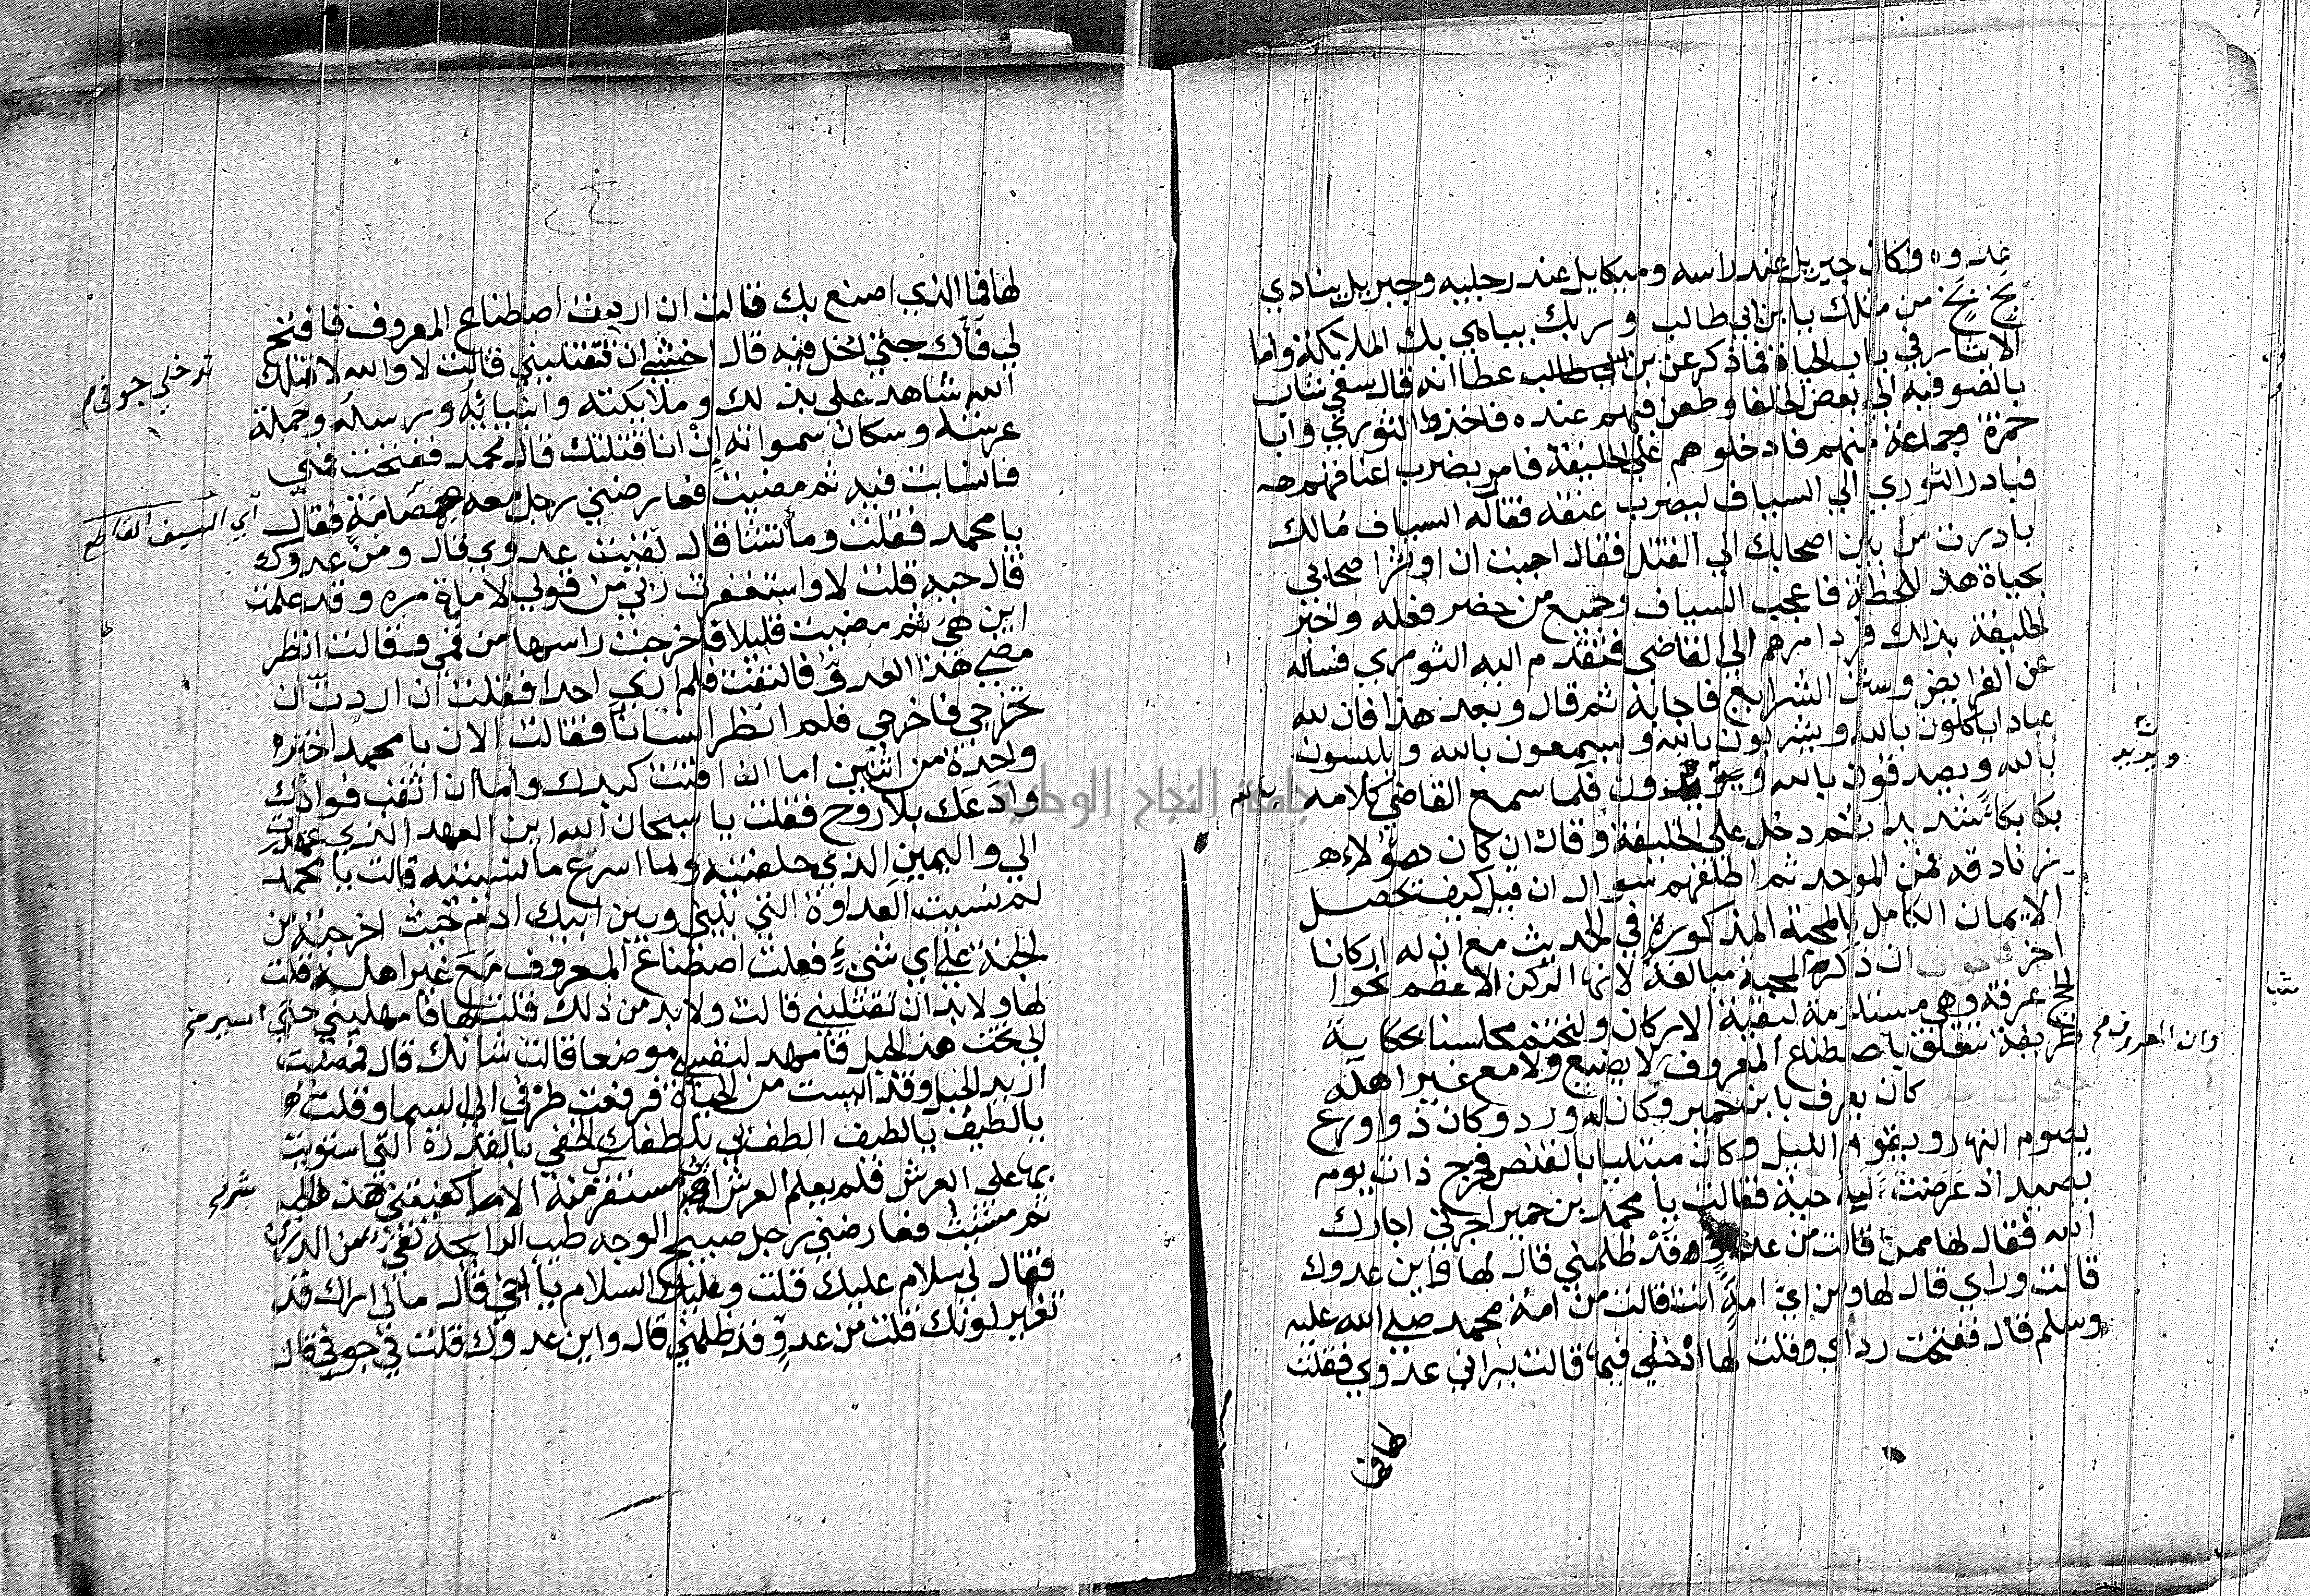 عدوه فكان جبريل عند راسه وميكايل عند رجليه وجبريل ينادي
بخ بخ من مثلك يا بن ابي طالب وربك يباهي بك الملايكة واما
الايثار في باب الحياة فما ذكر عن بن عطا انه قال سعي شاب
بالصوفية الي بعض الخلفا وطعن فيهم عنده فاخذ النوري وابا
حمزة وجماعة منهم فادخلوهم علي الخليفة فامر بضرب اعناقهم
فبادر النوري الي السياف ليضرب عنقه فقال له السياف مالك
بادرت من بين اصحابك الي القتل فقال احببت ان اوثر اصحابي
بحياة هذه اللحظة فاعجب السياف وجميع من حضر فعله واخبر
الخليفة بذلك فرد امرهم الي القاضي فتقدم اليه النوري فساله
عن الفرايض وسنن الشرايع فاجابه ثم قال وبعد هذا فان لله
عبادا ياكلون بالله ويشربون بالله ويسمعون بالله ويلبسون
بالله ويصدقون بالله ويردون فلما سمع القاضي كلامه
بكا بكا شديدا ثم دخل علي الخليفة وقال ان كان هؤلاء
زنادقه فمن الموحد ثم اطلقهم سوال ان قيل كيف تحصل
الايمان الكامل بالمحبة المذكورة في الحديث مع ان له اركانا
اخر جواب ان ذكر المحبة مبالغة لانها الركن الاعظم نحو
الحج عرفة وهي مستلزمة لبقية الاركان ولنختم مجلسنا بحكاية
ظريفة تتعلق باصطناع المعروف لا يضيع ولا مع غير اهله
وان المعروف
كان يعرف بابن حمير وكان له ورد وكان ذا ورع
يصوم النهار ويقوم الليل وكان مبتليا بالقنص فخرج ذات يوم
يصيد اذ عرضت له حية فقالت يا محمد بن حمير اجرني اجارك
الله فقال لها ممن قالت من عدو قد ظلمني قال لها واين عدوك
قالت وراي قال لها ومن اي امة انت قالت من امة محمد صلي الله عليه
وسلم قال ففتحت رداي وقلت لها ادخلي فيها قالت يراني عدوي فقلت
لها فما
لها فما الذي اصنع بك قالت ان اردت اصطناع المعروف فافتح
لي فاك حتي ادخل فيه قال اخشي ان تقتليني قالت لا والله لا اقتلك
تدخلي جوفي
الله شاهد علي بذلك وملايكته وانبيائه ورسله وحملة
عرشه وسكان سمواته ان انا قتلتك قال محمد ففتحت فمي
فانسابت فيه ثم مضيت فعارضني رجل معه صمصامة فقال
أي السيف القاطع
يا محمد فقلت وما تشا قال لقيت عدوي قال ومن عدوك
قال حية قلت لا واستغفرت ربي من قولي لا ماية مره وقد علمت
اين هي ثم مضيت قليلا فاخرجت راسها من فمي وقالت انظر
مضي هذا العدو فالتفت فلم اري احدا فقلت ان اردت ان
تخرجي فاخرجي فلم انظر انسانا فقالت الان يا محمد اختر
واحدة من اثنين اما ان افتت كبدك واما ان اثقب فوادك
وادعك بلا روح فقلت يا سبحان الله اين العهد الذي عهدت
الي واليمين الذي حلفتيه وما اسرع ما نسيتيه قالت يا محمد
لم نسيت العداوة التي بيني وبين ابيك ادم حيث اخرجته من
الجنة علي اي شيء فعلت اصطناع المعروف مع غير اهله قلت
لها ولا بد ان تقتليني قالت ولا بد من ذلك قلت لها فامهليني حتي اسير
الي تحت هذا الجبل فامهد لنفسي موضعا قالت شانك قال فمضيت
اريد الجبل وقد ايست من الحياة فرفعت طرفي الي السما وقلت
يا لطيف يا لطيف الطف بي بلطفك الخفي بالقدرة التي استويت
بها علي العرش فلم يعلم العرش اين مستقرك منه الا ما كفيتني هذه الحية
ثم مشيت فعارضني رجل صبيح الوجه طيب الرايحة نقي من الدرن
فقال لي سلام عليك قلت وعليك السلام يا اخي قال مالي اراك قد
تغير لونك قلت من عدو قد ظلمني قال واين عدوك قلت في جوفي قال
جامعة النجاح الوطنية